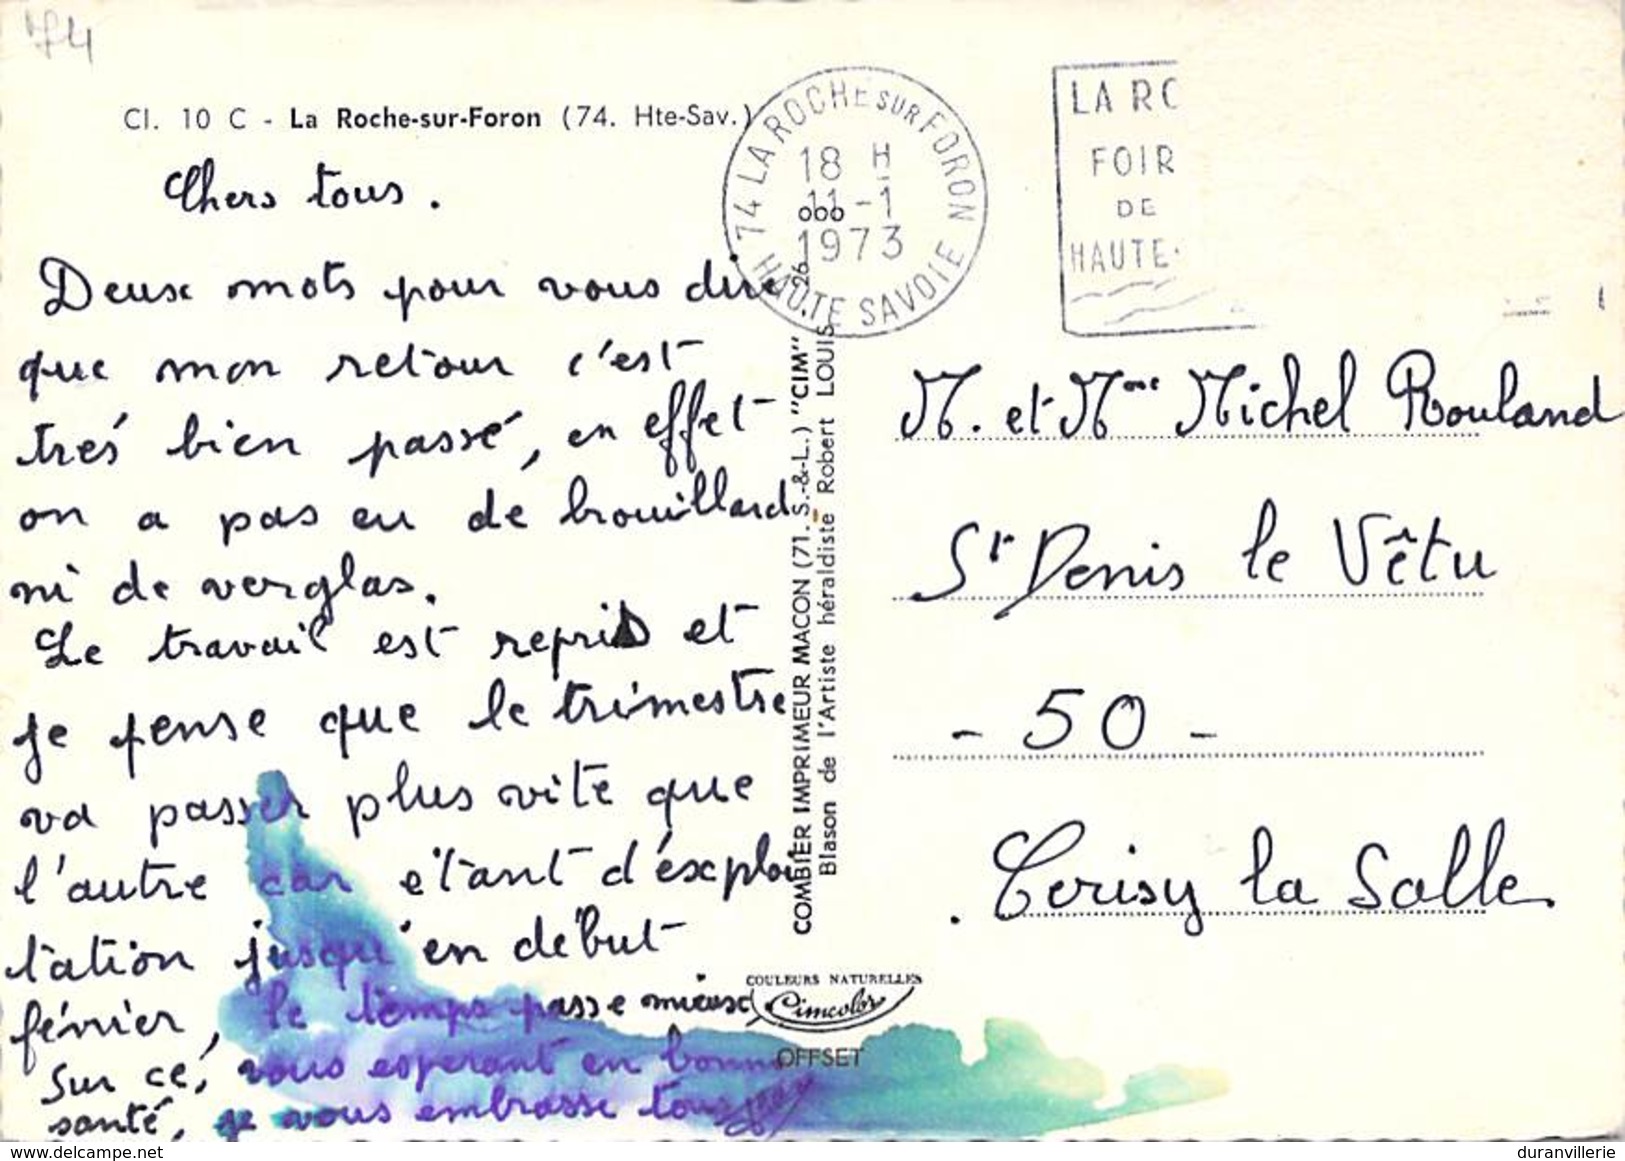 74
Cl. 10 C - La Roche-sur-Foron (74. Hte-Sav.)
Chers tous.
Deux mots pour vous dire
que mon retour c'est
très bien passé, en effet
on a pas eu de brouillard
ni de verglas.
Le travail est repris et
je pense que le trimestre
va passer plus vite que
l'autre car étant d'exploi
tation jusqu'en début
février, le temps passe mieux
Sur ce, vous esperant en bonne
santé, je vous embrasse tous
74 LA ROCHE SUR FORON
18 H
11-1
1973
HAUTE SAVOIE
LA RO
FOIR
DE
HAUTE-
COMBIER IMPRIMEUR MACON (71. S.-&-L.) "CIM"
Blason de l'Artiste héraldiste Robert LOUIS
COULEURS NATURELLES
Cimcolor
OFFSET
M. et Mme Michel Rouland
St Denis le Vêtu
- 50 -
. Cerisy la Salle.
www.delcampe.net
duranvillerie